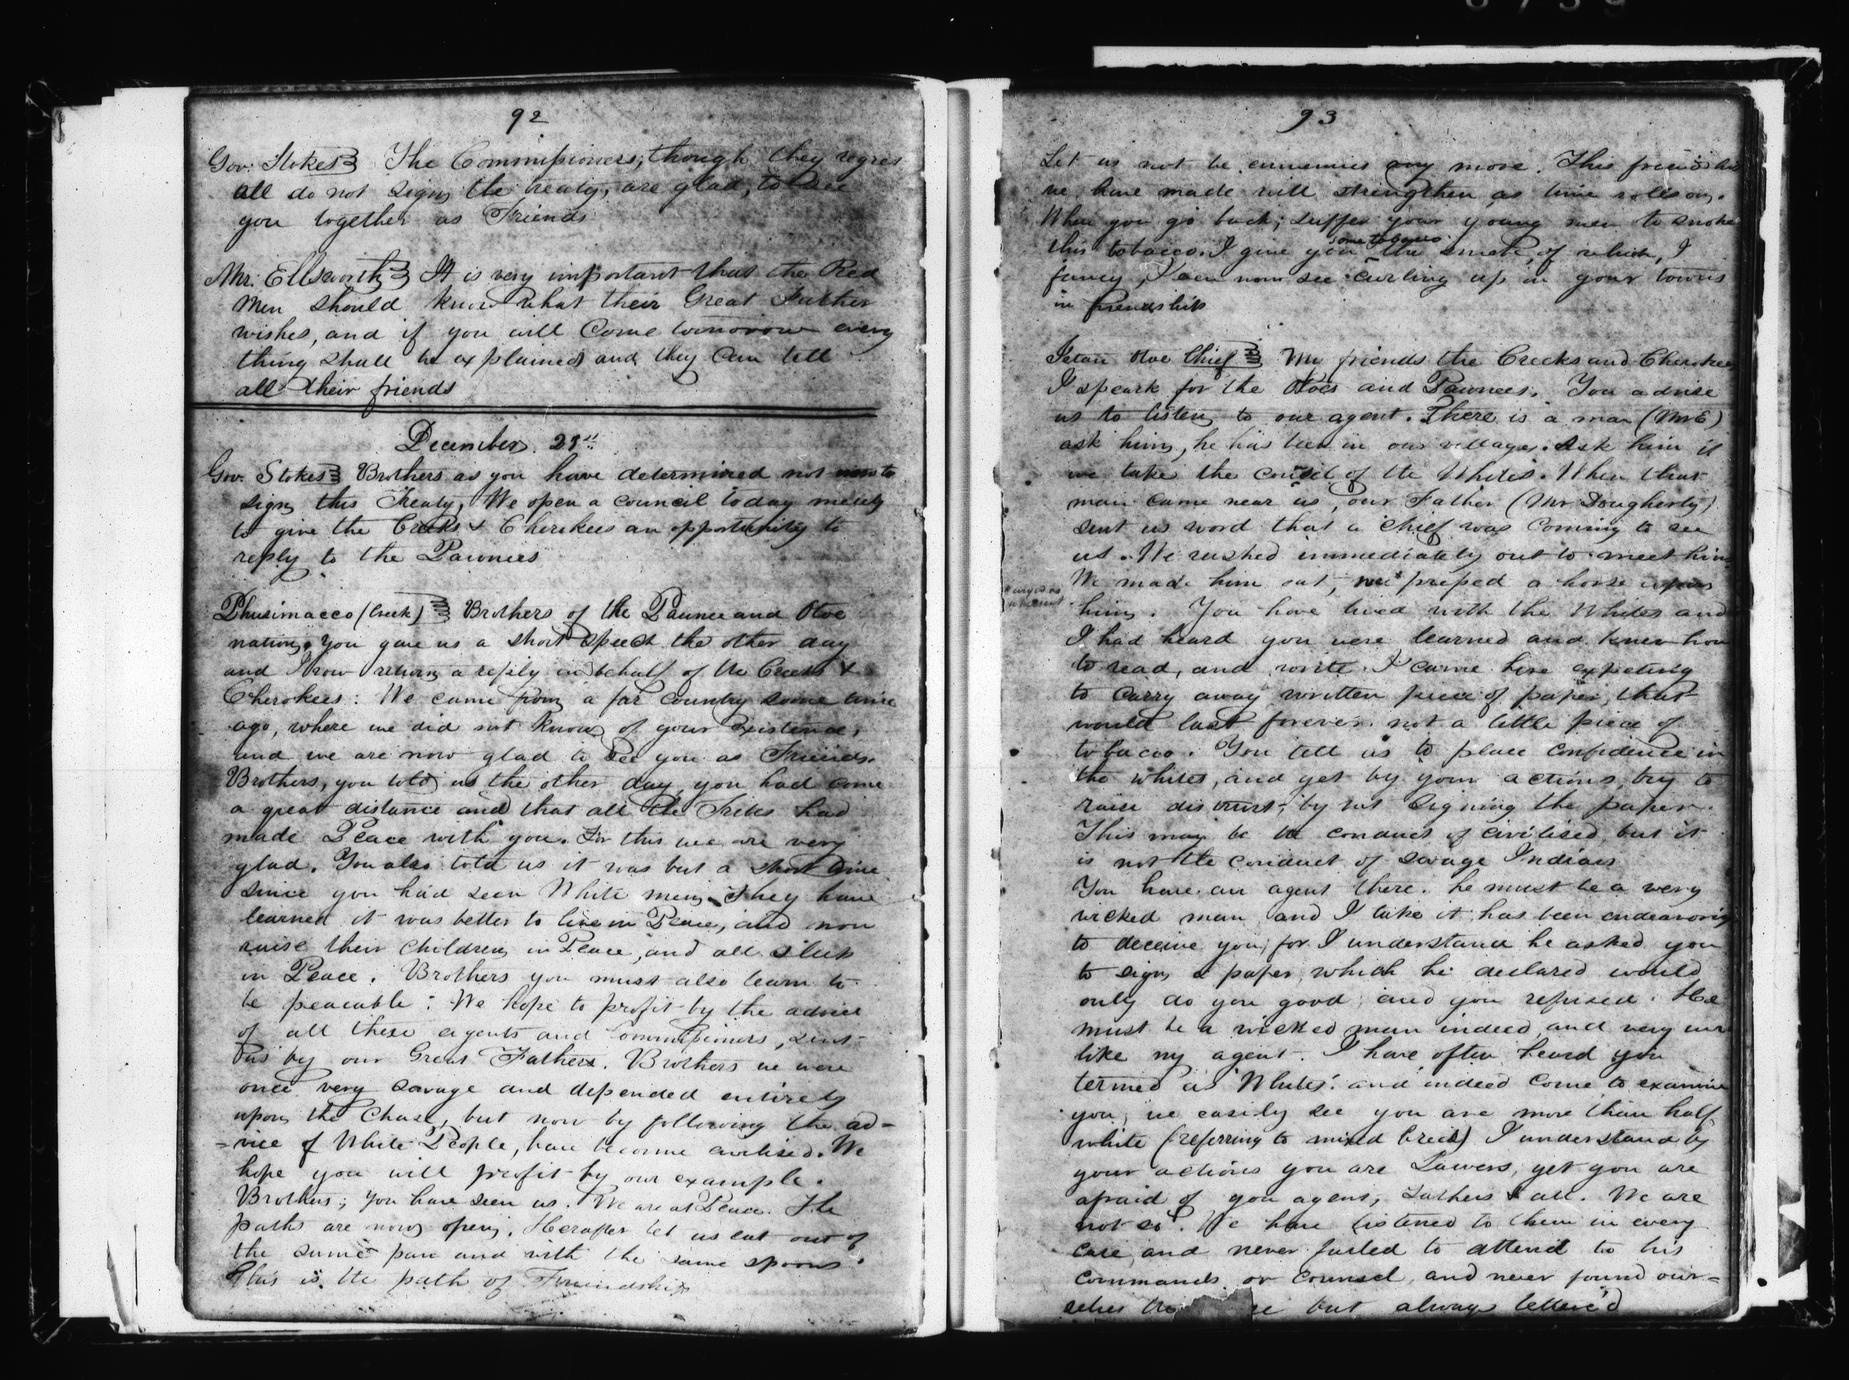 92
Gov: Stokes The Commissioners, though they regret
all do not sign the treaty, are glad, to see
you together as Friends
Mr. Ellsworth It is very important that the Red
Men should know what their Great Father
wishes, and if you will Come tomorrow every
thing shall be explained and they can tell
all their friends
December 23d
Gov. Stokes Brothers as you have determined not to
sign this Treaty, We open a council today merely
to give the Creeks & Cherokees an opportunity to
reply to the Pawnees
Phusimacco (Creek) Brothers of the Pawnee and Otoe
nation, You gave us a short speech the other day
and I now return a reply in behalf of the Creeks &
Cherokees: We came from a far Country some time
ago, where we did not know of your existence,
and we are now glad to see you as Friends.
Brothers, you told us the other day, you had come
a great distance and that all the Tribes had
made Peace with you. For this we are very
glad. You also told us it was but a short time
since you had seen White men. They have
learned it was better to live in Peace, and now
raise their children in Peace, and all sleep
in Peace. Brothers you must also learn to
be peacable: We hope to profit by the advice
of all these agents and Commissioners, sent
us by our Great Father. Brothers we were
once very savage and depended entirely
upon the Chase, but now by following the ad-
-vice of White People, have become civilised. We
hope you will profit by our example.
Brothers; you have seen us. We are at Peace. The
paths are now open. Herafter let us eat out of
the same pan and with the same spoons.
This is the path of Friendship
93
Let us not be ennemies any more. This friendship
we have made will strengthen as time rolls on.
When you go back; suffer your young men to smoke
this tobacco. I give you some tobacco the smoke, of which, I
fancy, I can now see curling up in your towns
in friendship
Ietan Otoe Chief My friends the Creeks and Cherokees
I speark for the Otoes and Pawnees. You advise
us to listen to our agent. There is a man (Mr E)
ask him, he has been in our villages. Ask him if
we take the council of the Whites. When that
man came near us, our Father (Mr Dougherty)
sent us word that a chief was coming to see
us. We rushed immediately out to meet him
We made him eat, we pressed a horse upon
him. You have lived with the Whites and
I had heard you were learned and knew how
to read, and write. I came here expecting
to carry away written piece of paper, that
would last forever. not a little piece of
tobacco. You tell us to place confidence in
the whites, and yet by your actions, try to
raise distrust, by not signing the paper.
This may be the conduct of civilised but it
is not the conduct of savage Indians
You have an agent there. he must be a very
wicked man, and I take it, has been endeavoring
to deceive you, for I understand he asked you
to sign a paper, which he declared would
only do you good, and you refused. He
must be a wicked man indeed, and very un
like my agent. I have often heard you
termed as 'Whites'. and indeed come to examine
you, we easily see you are more than half
white (referring to mixed breed) I understand by
your actions you are Lawers, yet you are
afraid of you agent, Fathers & all. We are
not so. We have listened to them in every
case, and never failed to attend to his
commands or counsel, and never found our-
selves but always better'd